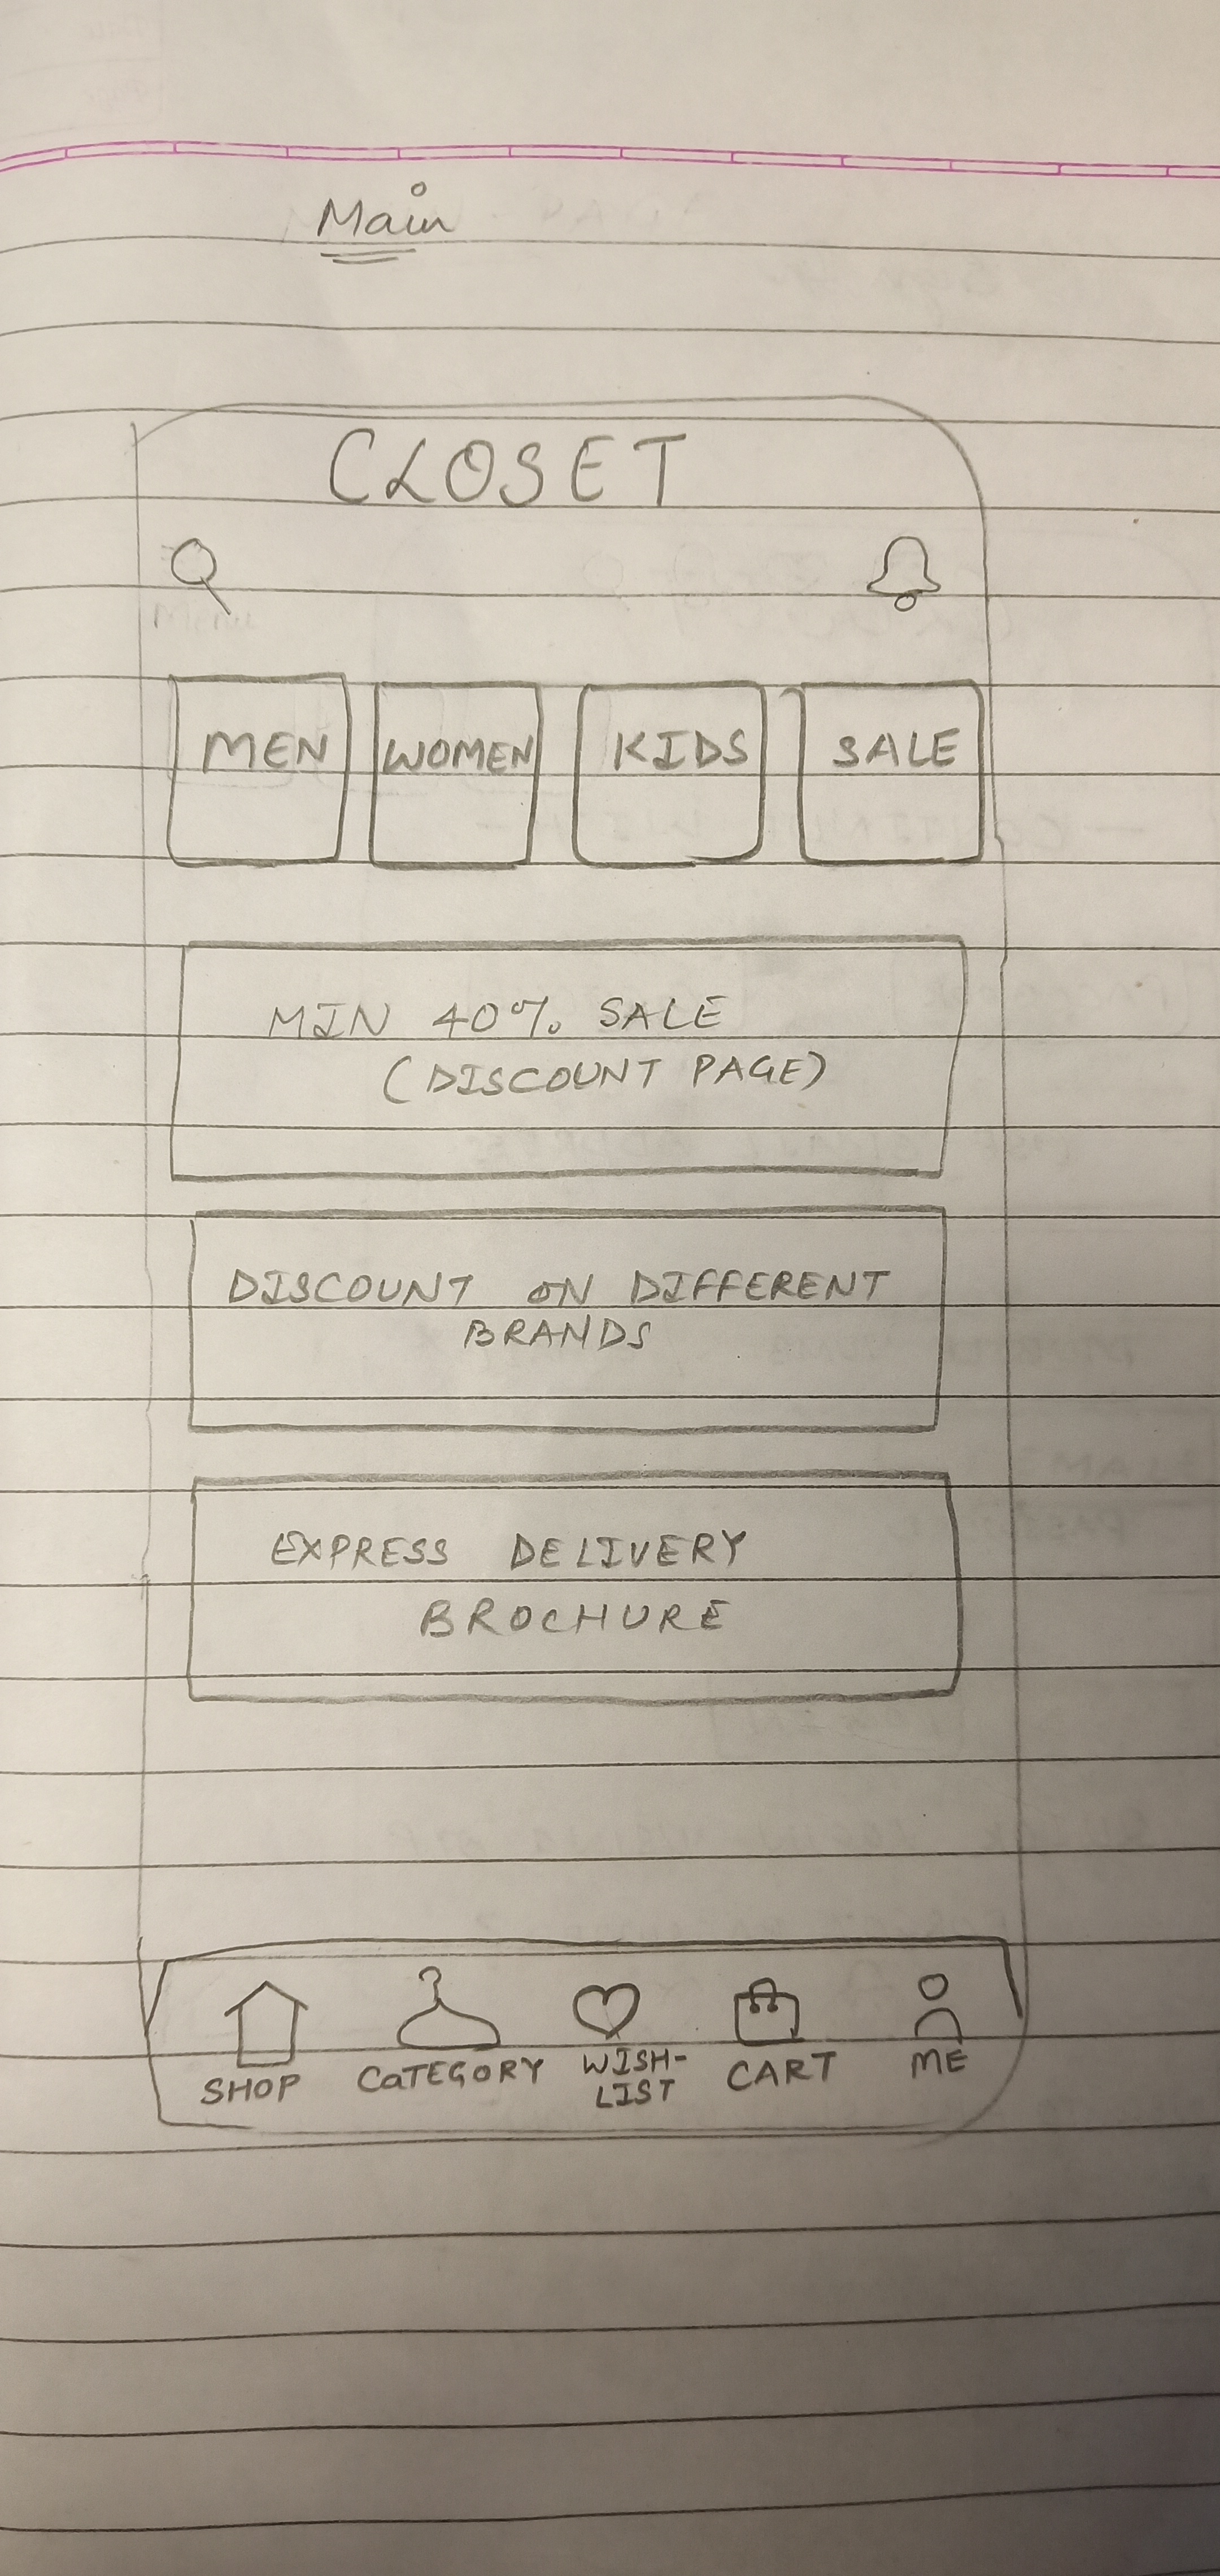 Main
CLOSET
MEN WOMEN KIDS SALE
MIN 40% SALE
(DISCOUNT PAGE)
DISCOUNT ON DIFFERENT
BRANDS
EXPRESS DELIVERY
BROCHURE
SHOP CATEGORY WISH-
LIST CART ME